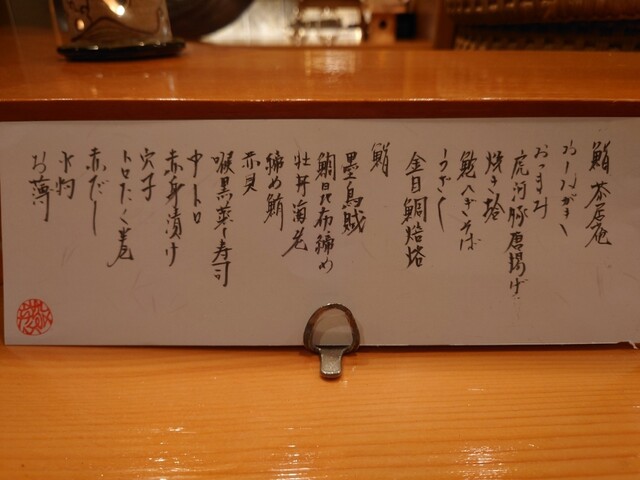 鮨 茶居庵
おしながき
おつまみ
虎河豚唐揚げ
焼き蛤
鮑へぎそば
うざく
金目鯛焙烙
鮨
墨烏賊
鯛昆布締め
牡丹海老
締め鯖
赤貝
喉黒蒸し寿司
中トロ
赤身漬け
穴子
トロたく巻
赤だし
水物
お薄